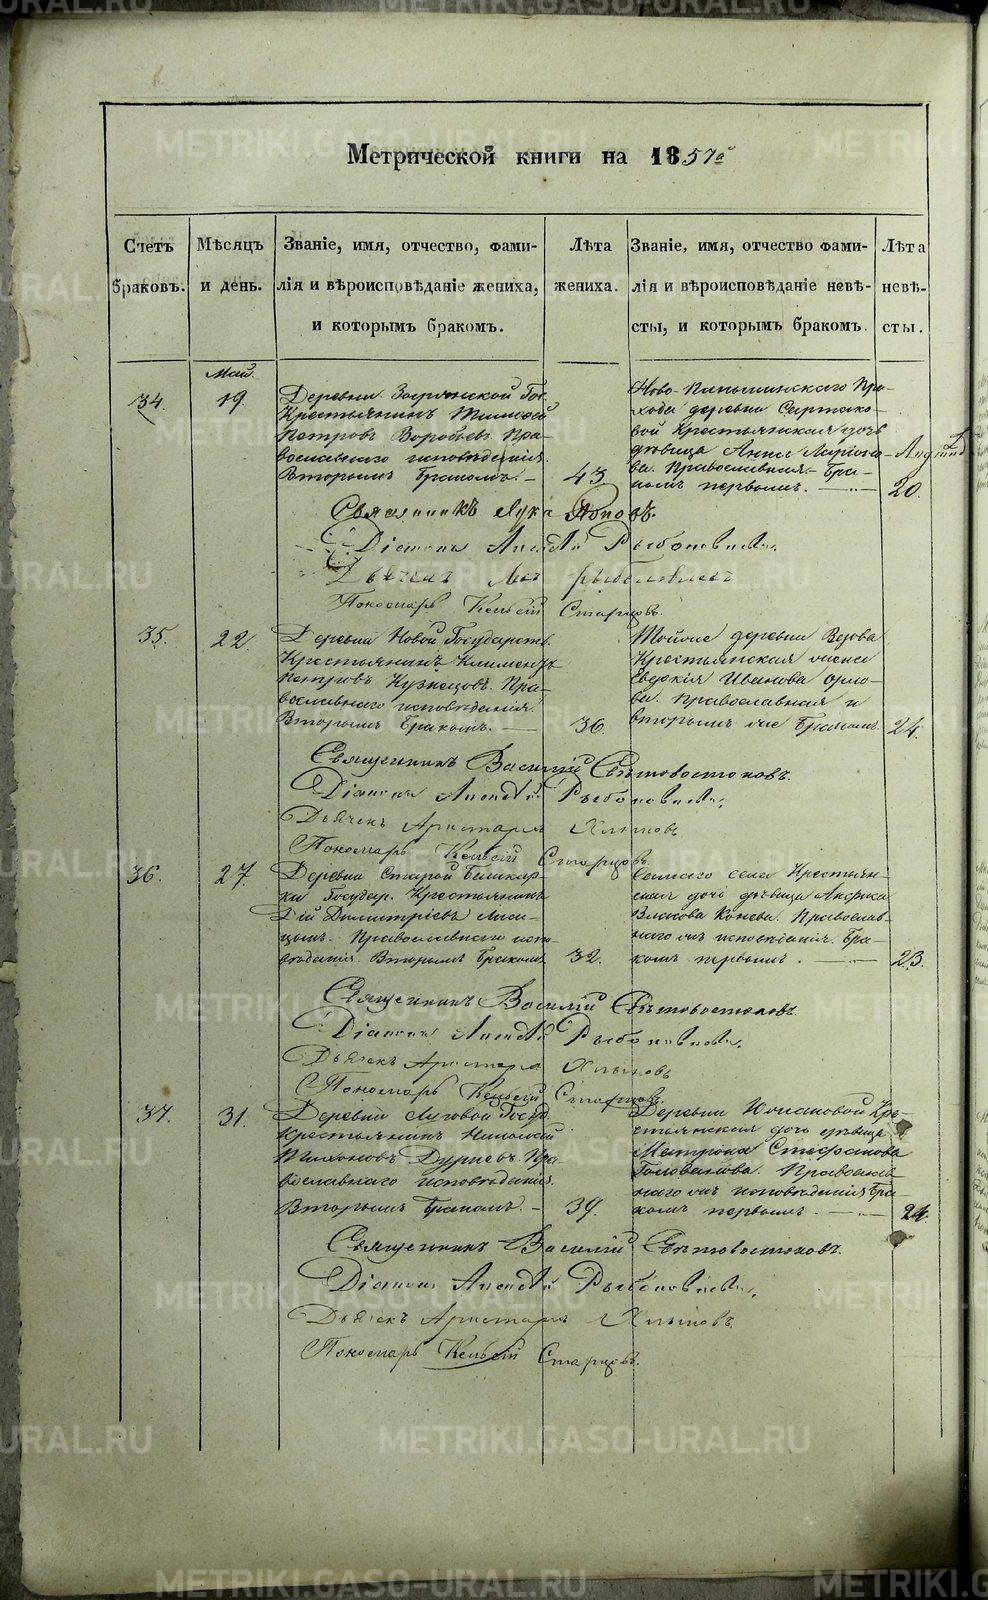 Метрической книги на 1857й
Счетъ браковъ.
Мѣсяцъ и день.
Званіе, имя, отчество, фами-
лія и вѣроисповѣданіе жениха,
и которымъ бракомъ.
Лѣта
жениха.
Званіе, имя, отчество фами-
лія и вѣроисповѣданіе невѣ-
сты, и которымъ бракомъ.
Лѣта
невѣ-
сты.
Май.
34.
19.
Деревни Гос.
Крестьянинъ Тимофей
Петровъ Воробьевъ. Пра-
вославнаго исповѣданія.
Вторымъ бракомъ. —
43
Ново-Пышминскаго При-
хода деревни
Крестьянская дочь
дѣвица Анна Ларіоно-
ва. Православная. Бра-
комъ первымъ. —
20.
Священникъ Лука Поповъ.
Діаконъ Алексѣй
Дьячекъ
Пономарь Старцовъ.
35.
22.
Деревни Новой Государств.
Крестьянинъ Климентъ
Петровъ Кузнецовъ. Пра-
вославнаго исповѣданія.
Вторымъ бракомъ. —
36.
Тойже деревни Вдова
Крестьянская жена
Евдокія Иванова Орло-
ва. Православная и
вторымъ же бракомъ.
24.
Священникъ Василій Свѣтовостоковъ.
Діаконъ Алексѣй
Дьячекъ Аристархъ Хлыновъ
Пономарь Старцовъ.
36.
27.
Деревни Старой
Государ. Крестьянинъ
Дій Димитріевъ Лиси-
цынъ. Православнаго испо-
вѣданія. Вторымъ бракомъ
32.
Самаго села Крестьян-
ская дочь дѣвица Анфиса
Власова Конева. Православ-
наго исповѣданія. Бра-
комъ первымъ. —
23.
Священникъ Василій Свѣтовостоковъ.
Діаконъ Алексѣй
Дьячекъ Аристархъ Хлыновъ
Пономарь Старцовъ.
37.
31.
Деревни Луговой Госуд.
Крестьянинъ Николай
Тихоновъ Пра-
вославнаго исповѣданія.
Вторымъ бракомъ. —
39.
Деревни Кре-
стьянская дочь дѣвица
Матрона Стефанова
Голованова. Православ-
наго исповѣданія бра-
комъ первымъ. —
24.
Священникъ Василій Свѣтовостоковъ.
Діаконъ Алексѣй
Дьячекъ Аристархъ Хлыновъ.
Пономарь Старцовъ.
METRIKI.GASO-URAL.RU